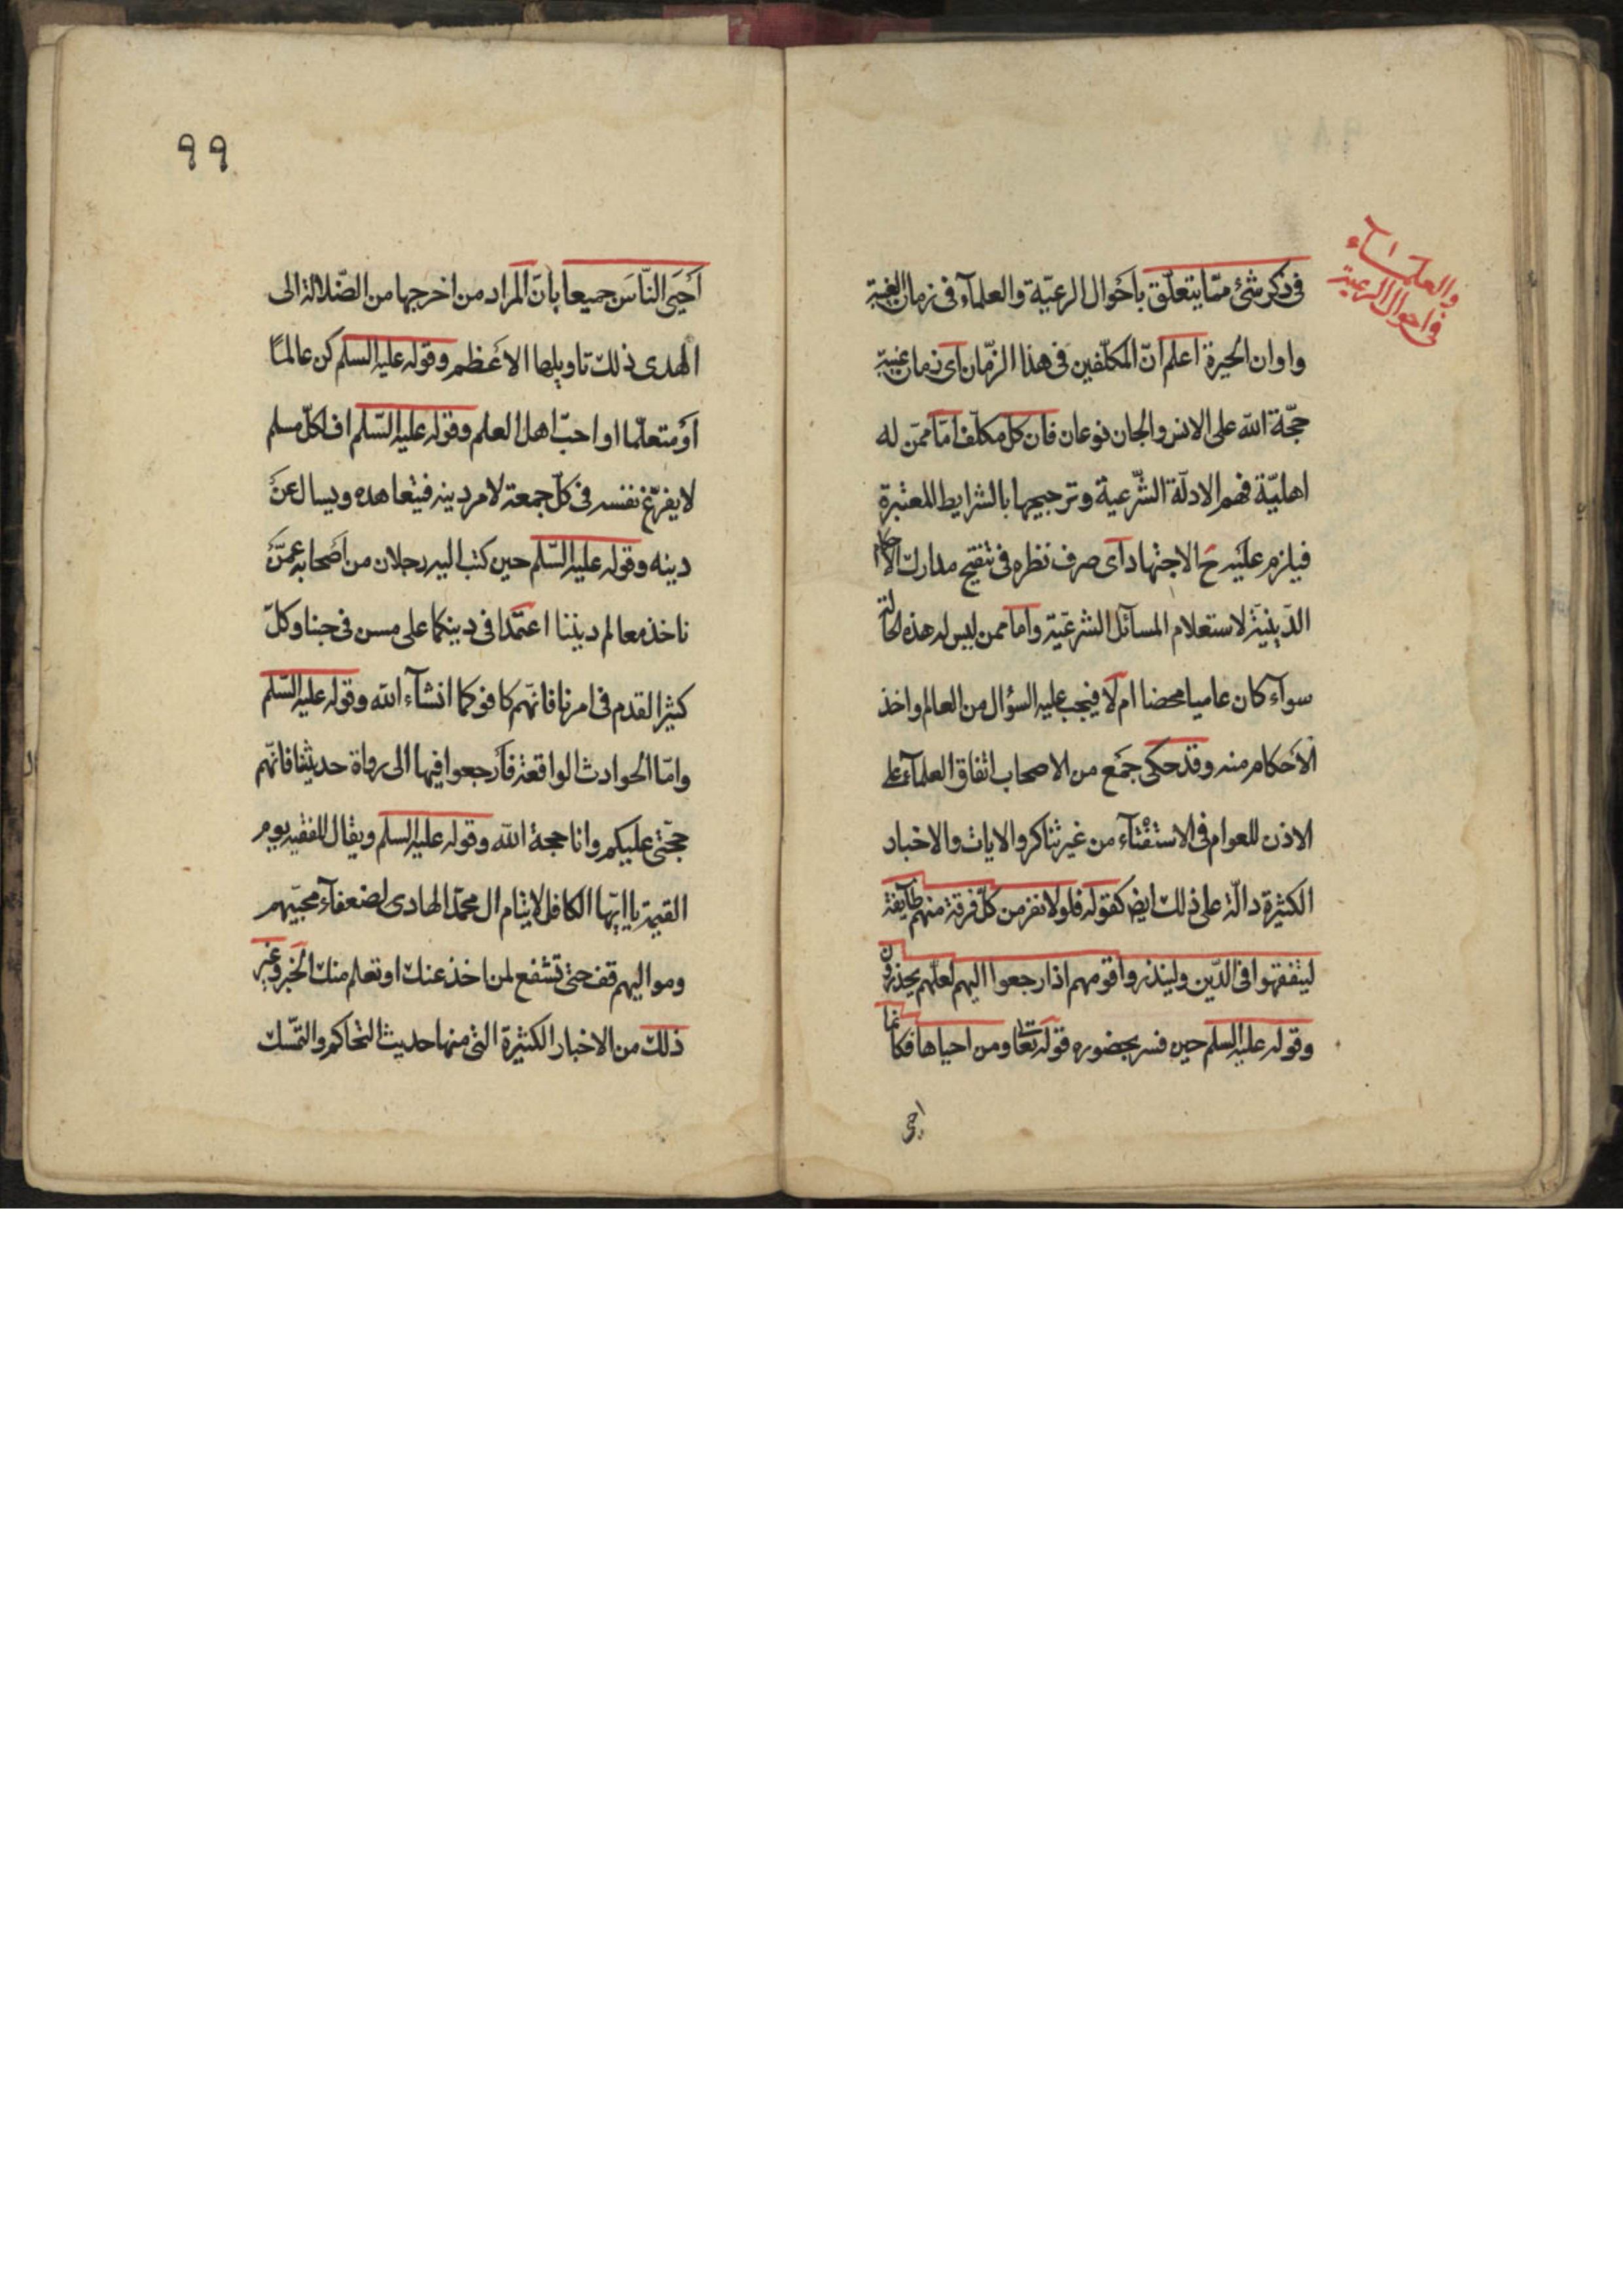 والعلمآء
فى احوال الرعية
فى ذكر شئ ممّا يتعلّق باحوال الرعيّة والعلمآء فى زمان الغيبة
واوان الحيرة اعلم انّ المكلّفين فى هذا الزّمان اى زمان غيبة
حجّة الله على الانس والجان نوعان فان كلّ مكلّف امّا ممّن له
اهليّة فهم الادلّة الشّرعية وترجيحها بالشرايط المعتبرة
فيلزم عليه ح الاجتهاد اى صرف نظره فى تنقيح مدارك الاحكام
الدّينيّة لاستعلام المسآئل الشرعيّة واما ممن ليس له هذه الحالة
سوآء كان عاميا محضا ام لا فيجب عليه السؤال من العالم واخذ
الأحكام منه وقد حكى جمع من الاصحاب اتفاق العلمآء على
الاذن للعوام فى الاستفتآء من غير تناكر والايات والاخبار
الكثيرة دالّة على ذلك ايض كقوله فلولا نفر من كلّ فرقة منهم طآيفة
ليتفقهوا فى الدّين ولينذروا قومهم اذا رجعوا اليهم لعلّهم يحذرون
وقوله عليه السلم حين فسر بحضوره قوله تعا ومن احياها فكانما
احيى
٩٩
أحيى النّاس جميعا بانّ المراد من اخرجها من الضّلالة الى
الهدى ذلك تاويلها الاعظم وقوله عليه السلم كن عالما
او متعلّما او احبّ اهل العلم وقوله عليه السّلم اف لكلّ مسلم
لا يفرّغ نفسه فى كلّ جمعة لامر دينه فيتعاهده ويسال عن
دينه وقوله عليه السّلم حين كتب اليه رجلان من أصحابه عمّن
ناخذ معالم ديننا اعتمدا فى دينكما على مسن فى حبنا وكلّ
كثير القدم فى امرنا فانّهم كافوكما انشآء الله وقوله عليه السّلم
وامّا الحوادث الواقعة فأرجعوا فيها الى رواة حديثنا فانّهم
حجّتى عليكم وانا حجة الله وقوله عليه السلم ويقال للفقيه يوم
القيمة يا ايّها الكافل لايتام ال محمّد الهادى لضعفآء محبّيهم
ومواليهم قف حتى تشفع لمن اخذ عنك او تعلم منك الخبر وغير
ذلك من الاخبار الكثيرة التى منها حديث التحاكم والتمّسك